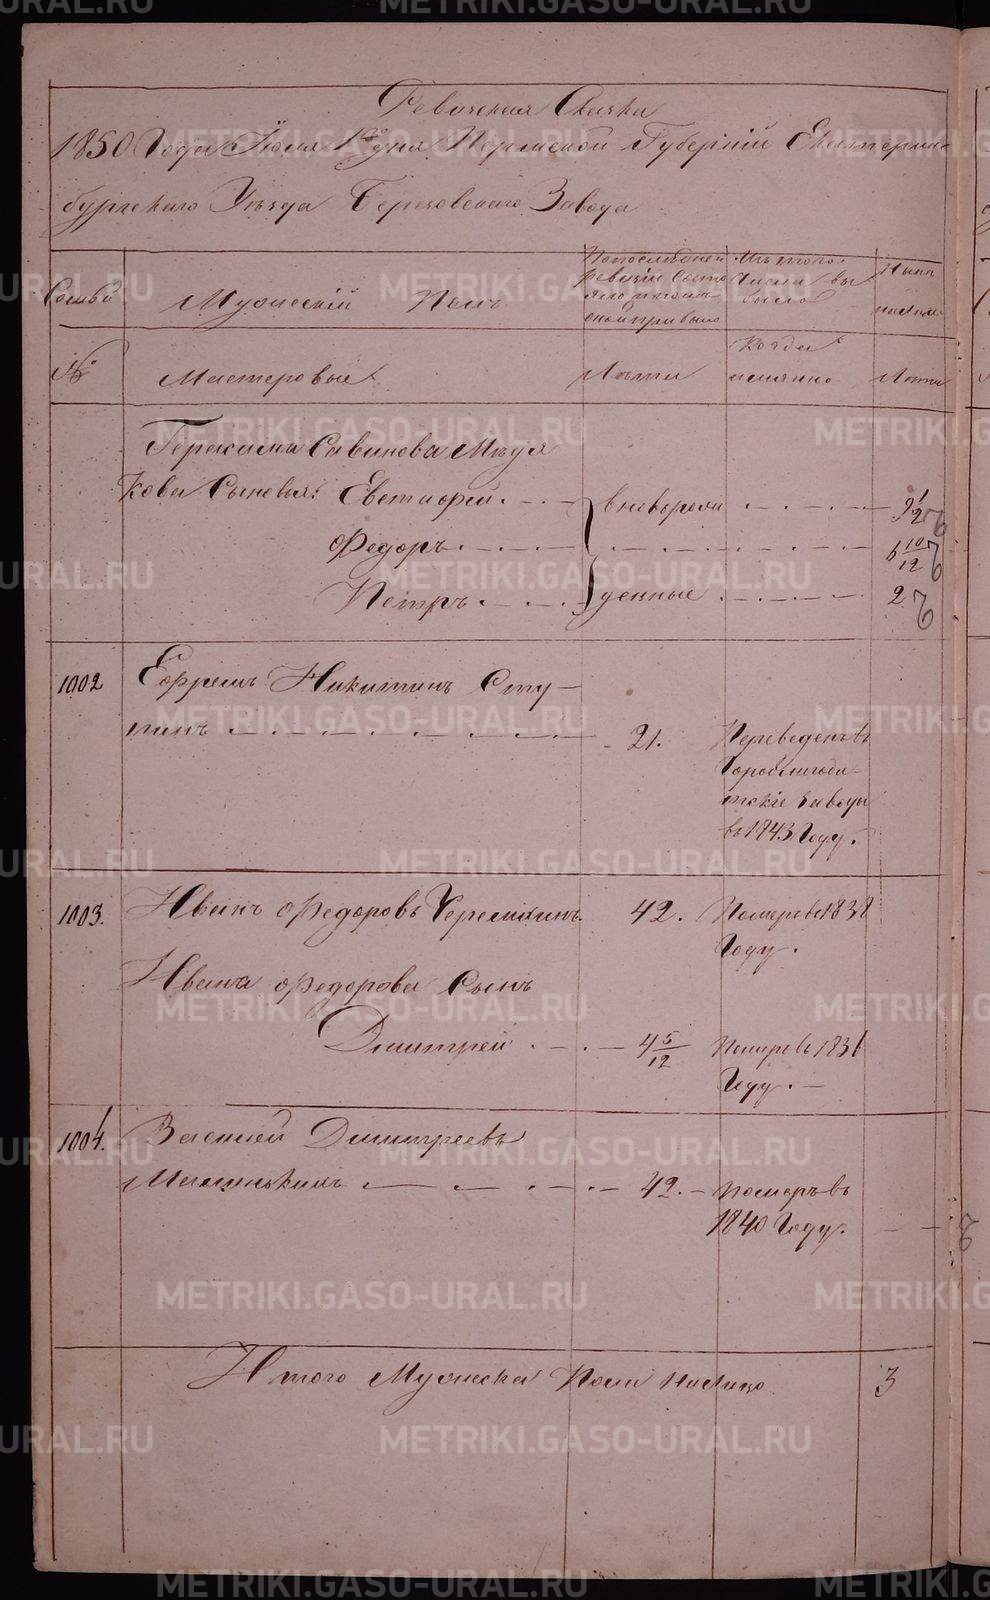 Ревизская Сказка
1850 Года Июля 1го дня Пермской Губернiй Екатерин-
бургскаго Уѣзда Березовскаго Завода
Семьи
Мужескiй Полъ
По последней ревизiи было
Изъ того числа вы было
Нынѣ на лицо
№
Мастеровые
Лѣта
Когда имянно
Лѣта
Герасима Савинова
кова Сыновья: Евстифей вновърож 9 1/2
Федоръ 6 10/12
Петръ денные 2
1002
Ефремъ Никитинъ Сту-
пинъ 21. Переведенъ въ
Гороблагода-
тскiе заводы
въ 1843 Году.
1003. Иванъ Федоровъ Черемхинъ 42. Померъ в 1838
Году.
Ивана Федорова Сынъ
Дмитрей 4 5/12 Померъ въ 1836
Году.
1004. Василей Дмитреевъ
Маминькинъ 42. померъ въ
1840 Году.
Итого Мужеска Пола налицо 3
METRIKI.GASO-URAL.RU